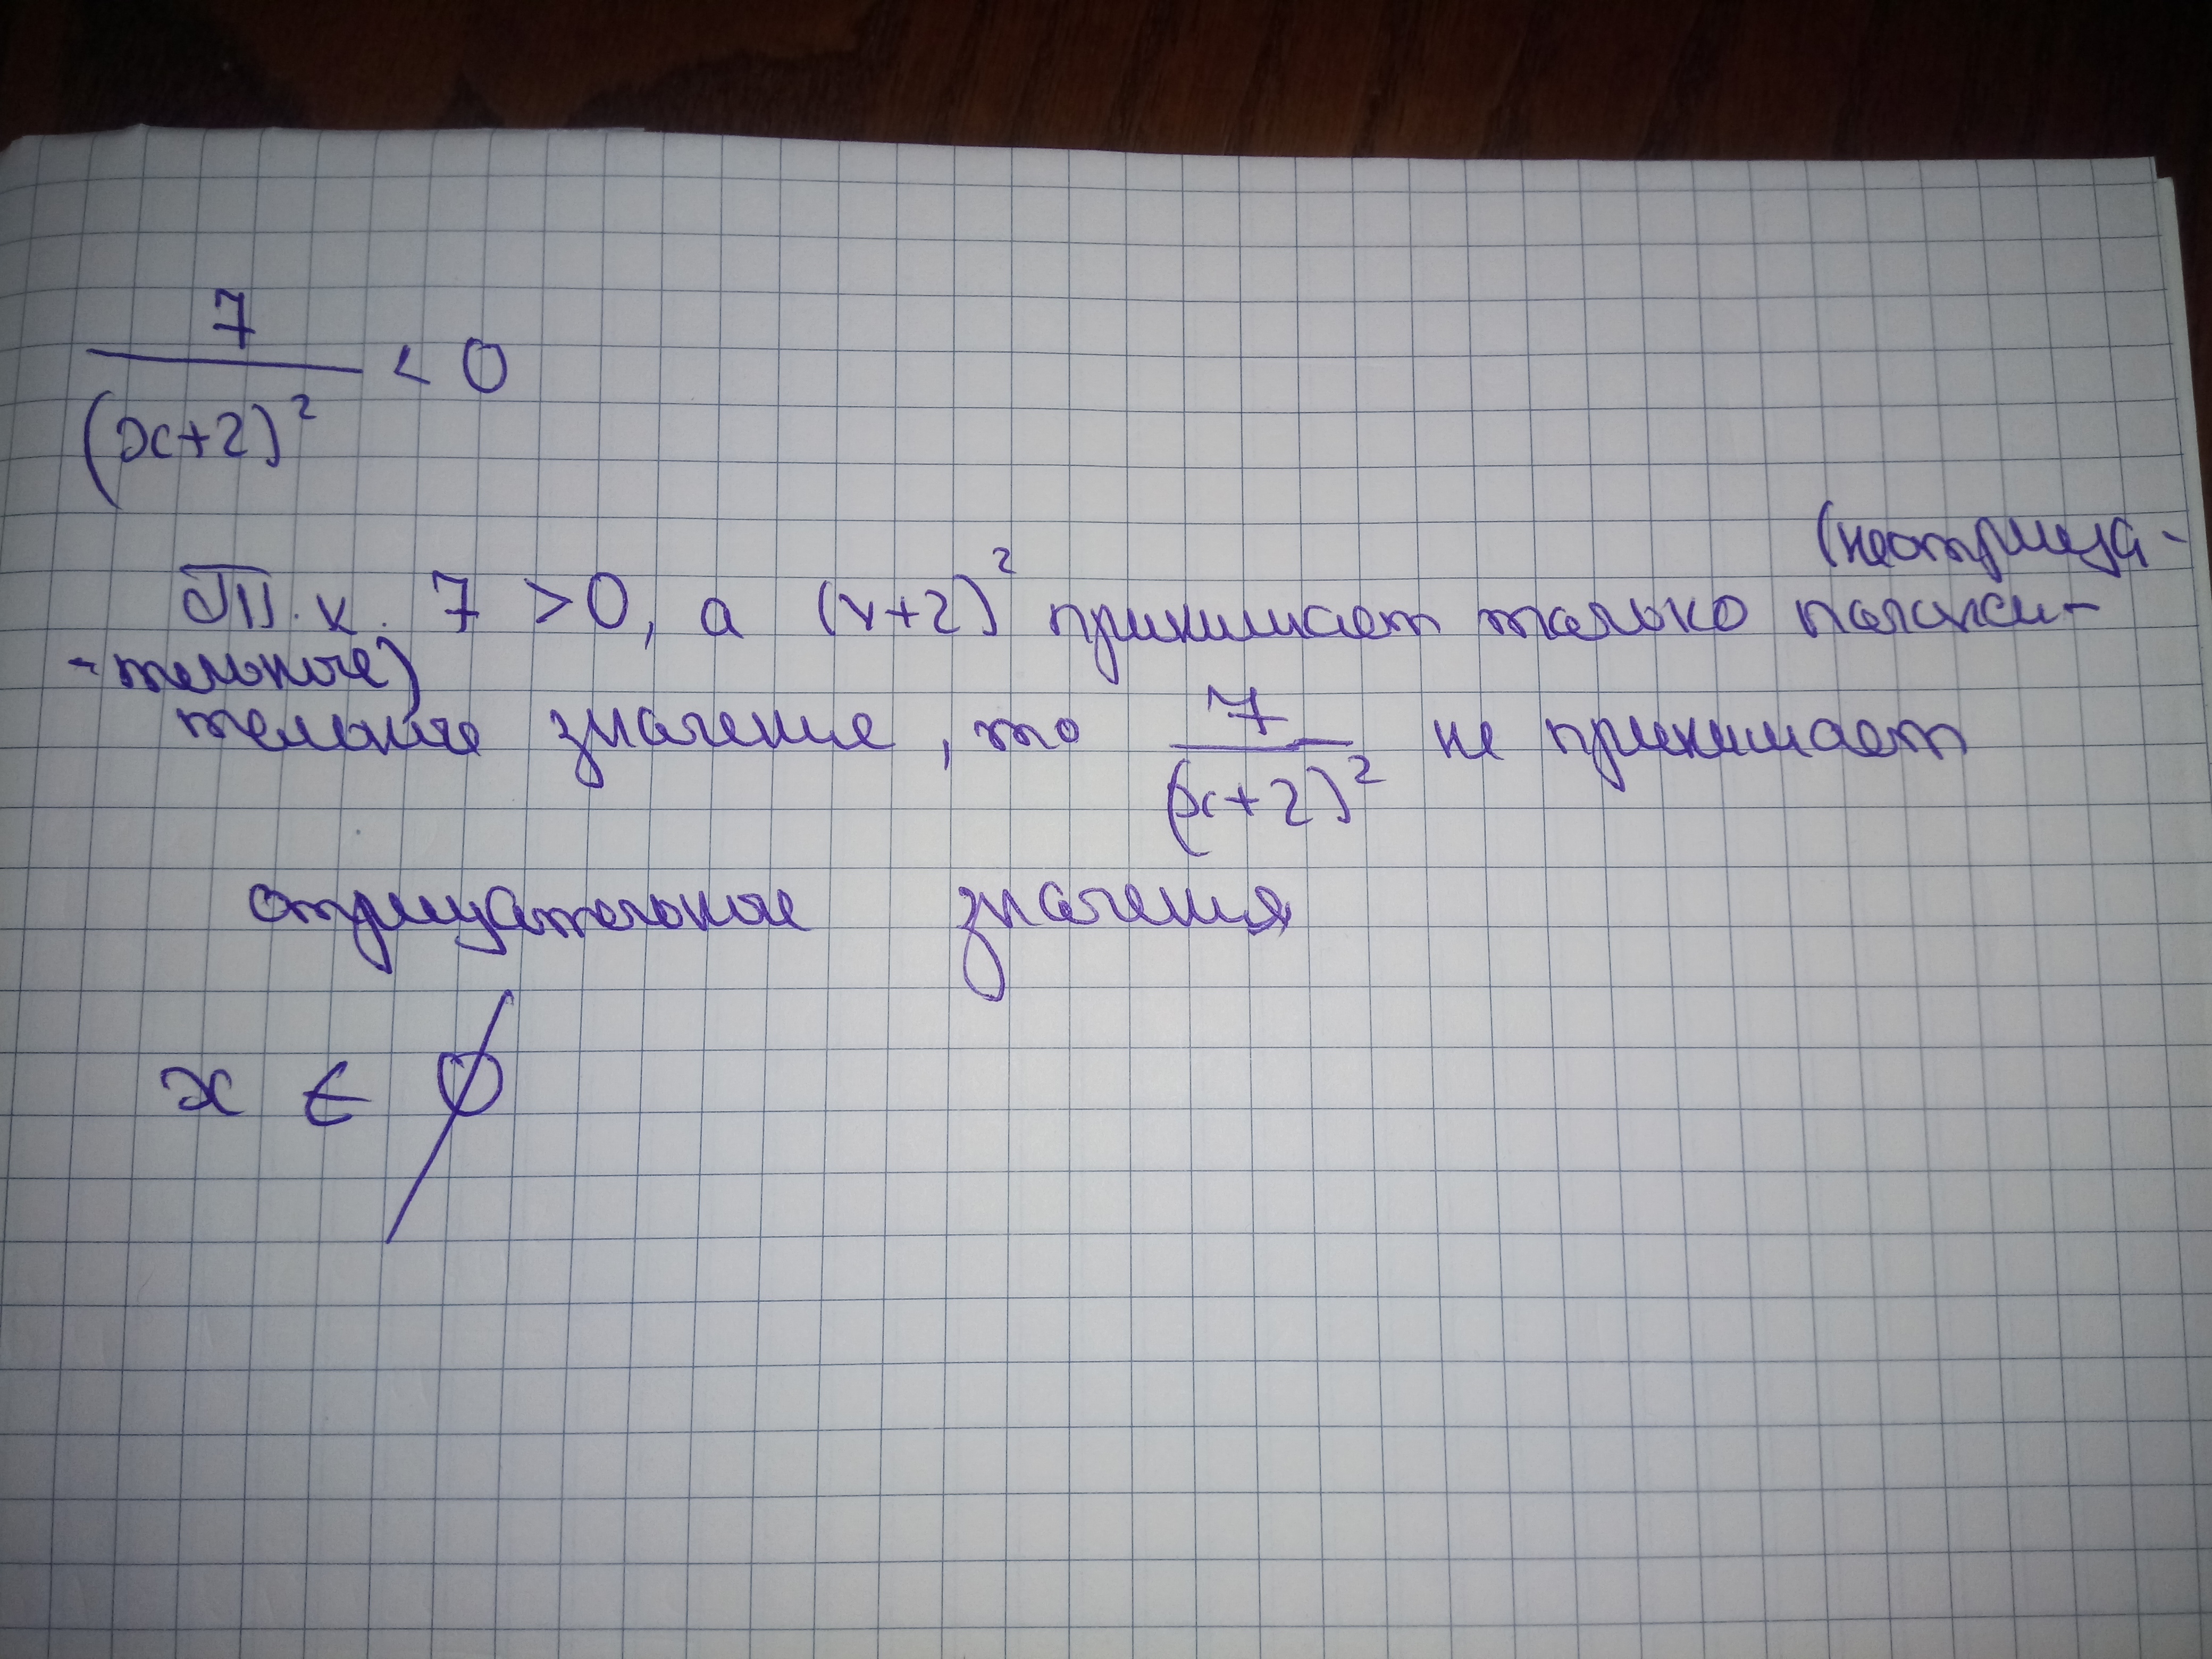 7
―――― < 0
(x+2)²
(неотрица-
Т.к. 7 > 0, а (x+2)² принимает только положи-
-тельные)
тельные значение, то 7/(x+2)² не принимает
отрицательное значения
x ∈ ∅